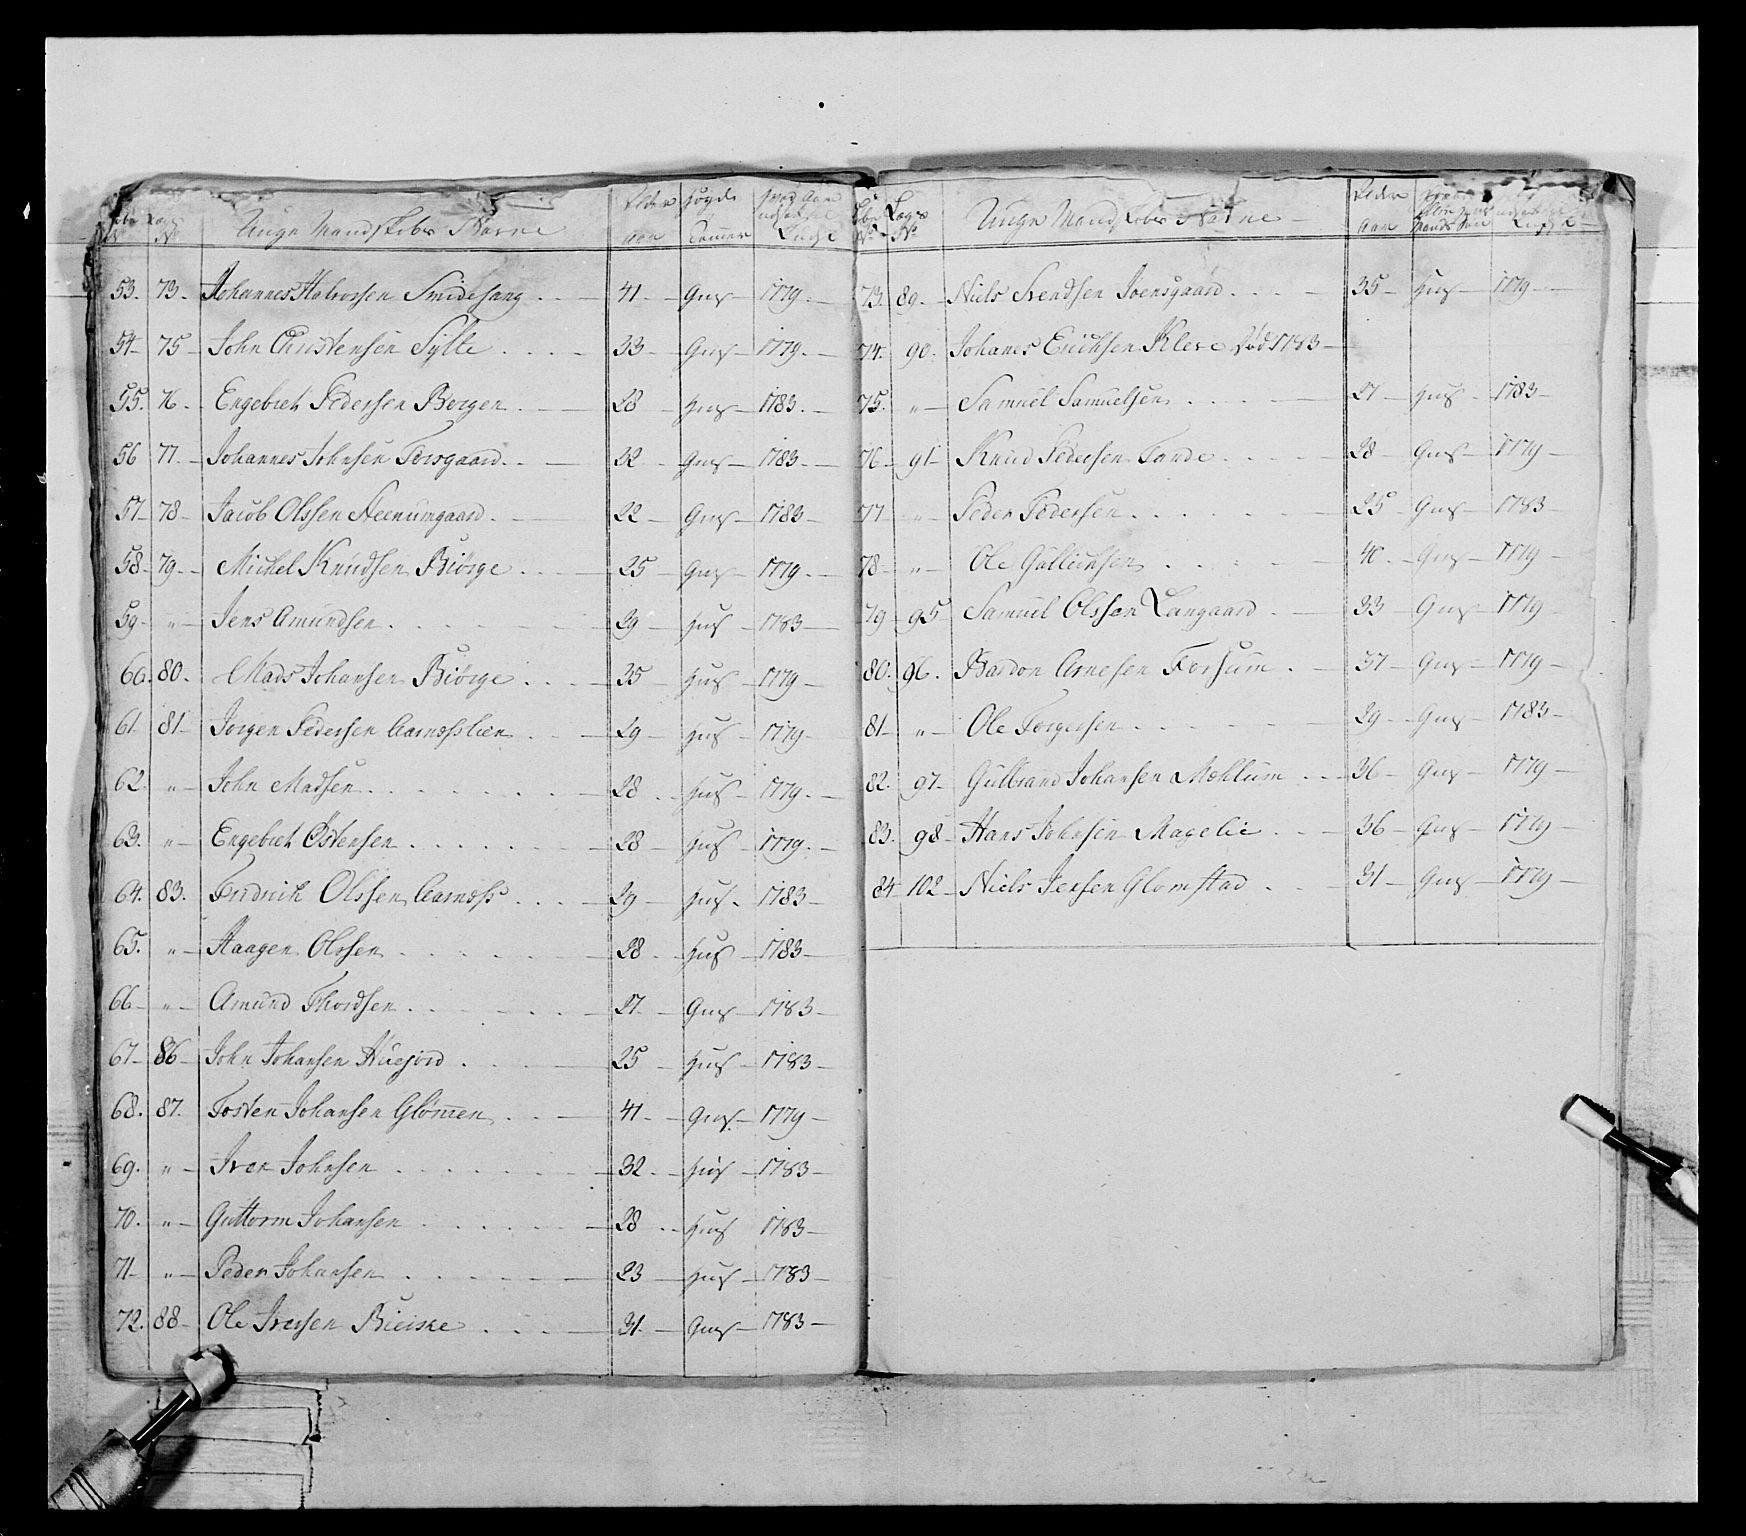 Unge Mandskabs Navne
53. 73. Johannes Halvorssen Smidesang 41 Gus 1779
54 75 John Christensen Sylte 33 Gus 1779
55. 76. Engebret Pedersen Bergen 28 Hus 1783
56 77 Johannes Johnsen Forsgaard 22 Gus 1783
57 78 Jacob Olssen Steenumgaard 22 Gus 1783
58 79 Mickel Knudsen Biørge 25 Gus 1779
59 " Jens Amundsen 29 Hus 1783
60. 80. Mads Johansen Biørge 35 Hus 1779
61 81 Jørgen Pedersen Aarnesslien 29 Hus 1779
62. " John Madsen 28 Hus 1779
63. " Engebret Østensen 28 Hus 1779
64. 83. Fridrich Olssen Aarness 29 Hus 1783
65. " Haagen Olssen 28 Hus 1783
66 " Amund Thordsen 27 Gus 1783
67 86 John Johansen Huejord 25 Hus 1783
68. 87. Tosten Johansen Glømmen 41 Gus 1779
69. " Iver Johnsen 32 Hus 1783
70. " Guttorm Johansen 28 Hus 1783
71 " Peder Johansen 23 Hus 1783
72. 88 Ole Iversen Bieiske 31 Gus 1783
Unge Mandskabs Navne
73. 89. Niels Svendsen Joensgaard 35 Hus 1779
74. 90. Johanes Erichsen Kleve død 1783
75. " Samuel Samuelsen 27 Hus 1783
76 91 Knud Pedersen Tande 28 Gus 1779
77 " Peder Pedersen 25 Gus 1783
78 " Ole Gulleichsen 40 Gus 1779
79 95 Samuel Olssen Langaard 33 Gus 1779
80. 96. Bardon Arnesen Forsum 37 Gus 1779
81 " Ole Torgersen 29 Gus 1783
82. 97 Gulbrand Johansen Mæhlum 36 Gus 1779
83. 98 Hans Johnsen Magelie 36 Gus 1779
84 102 Niels Jensen Glomstad 31 Gus 1779